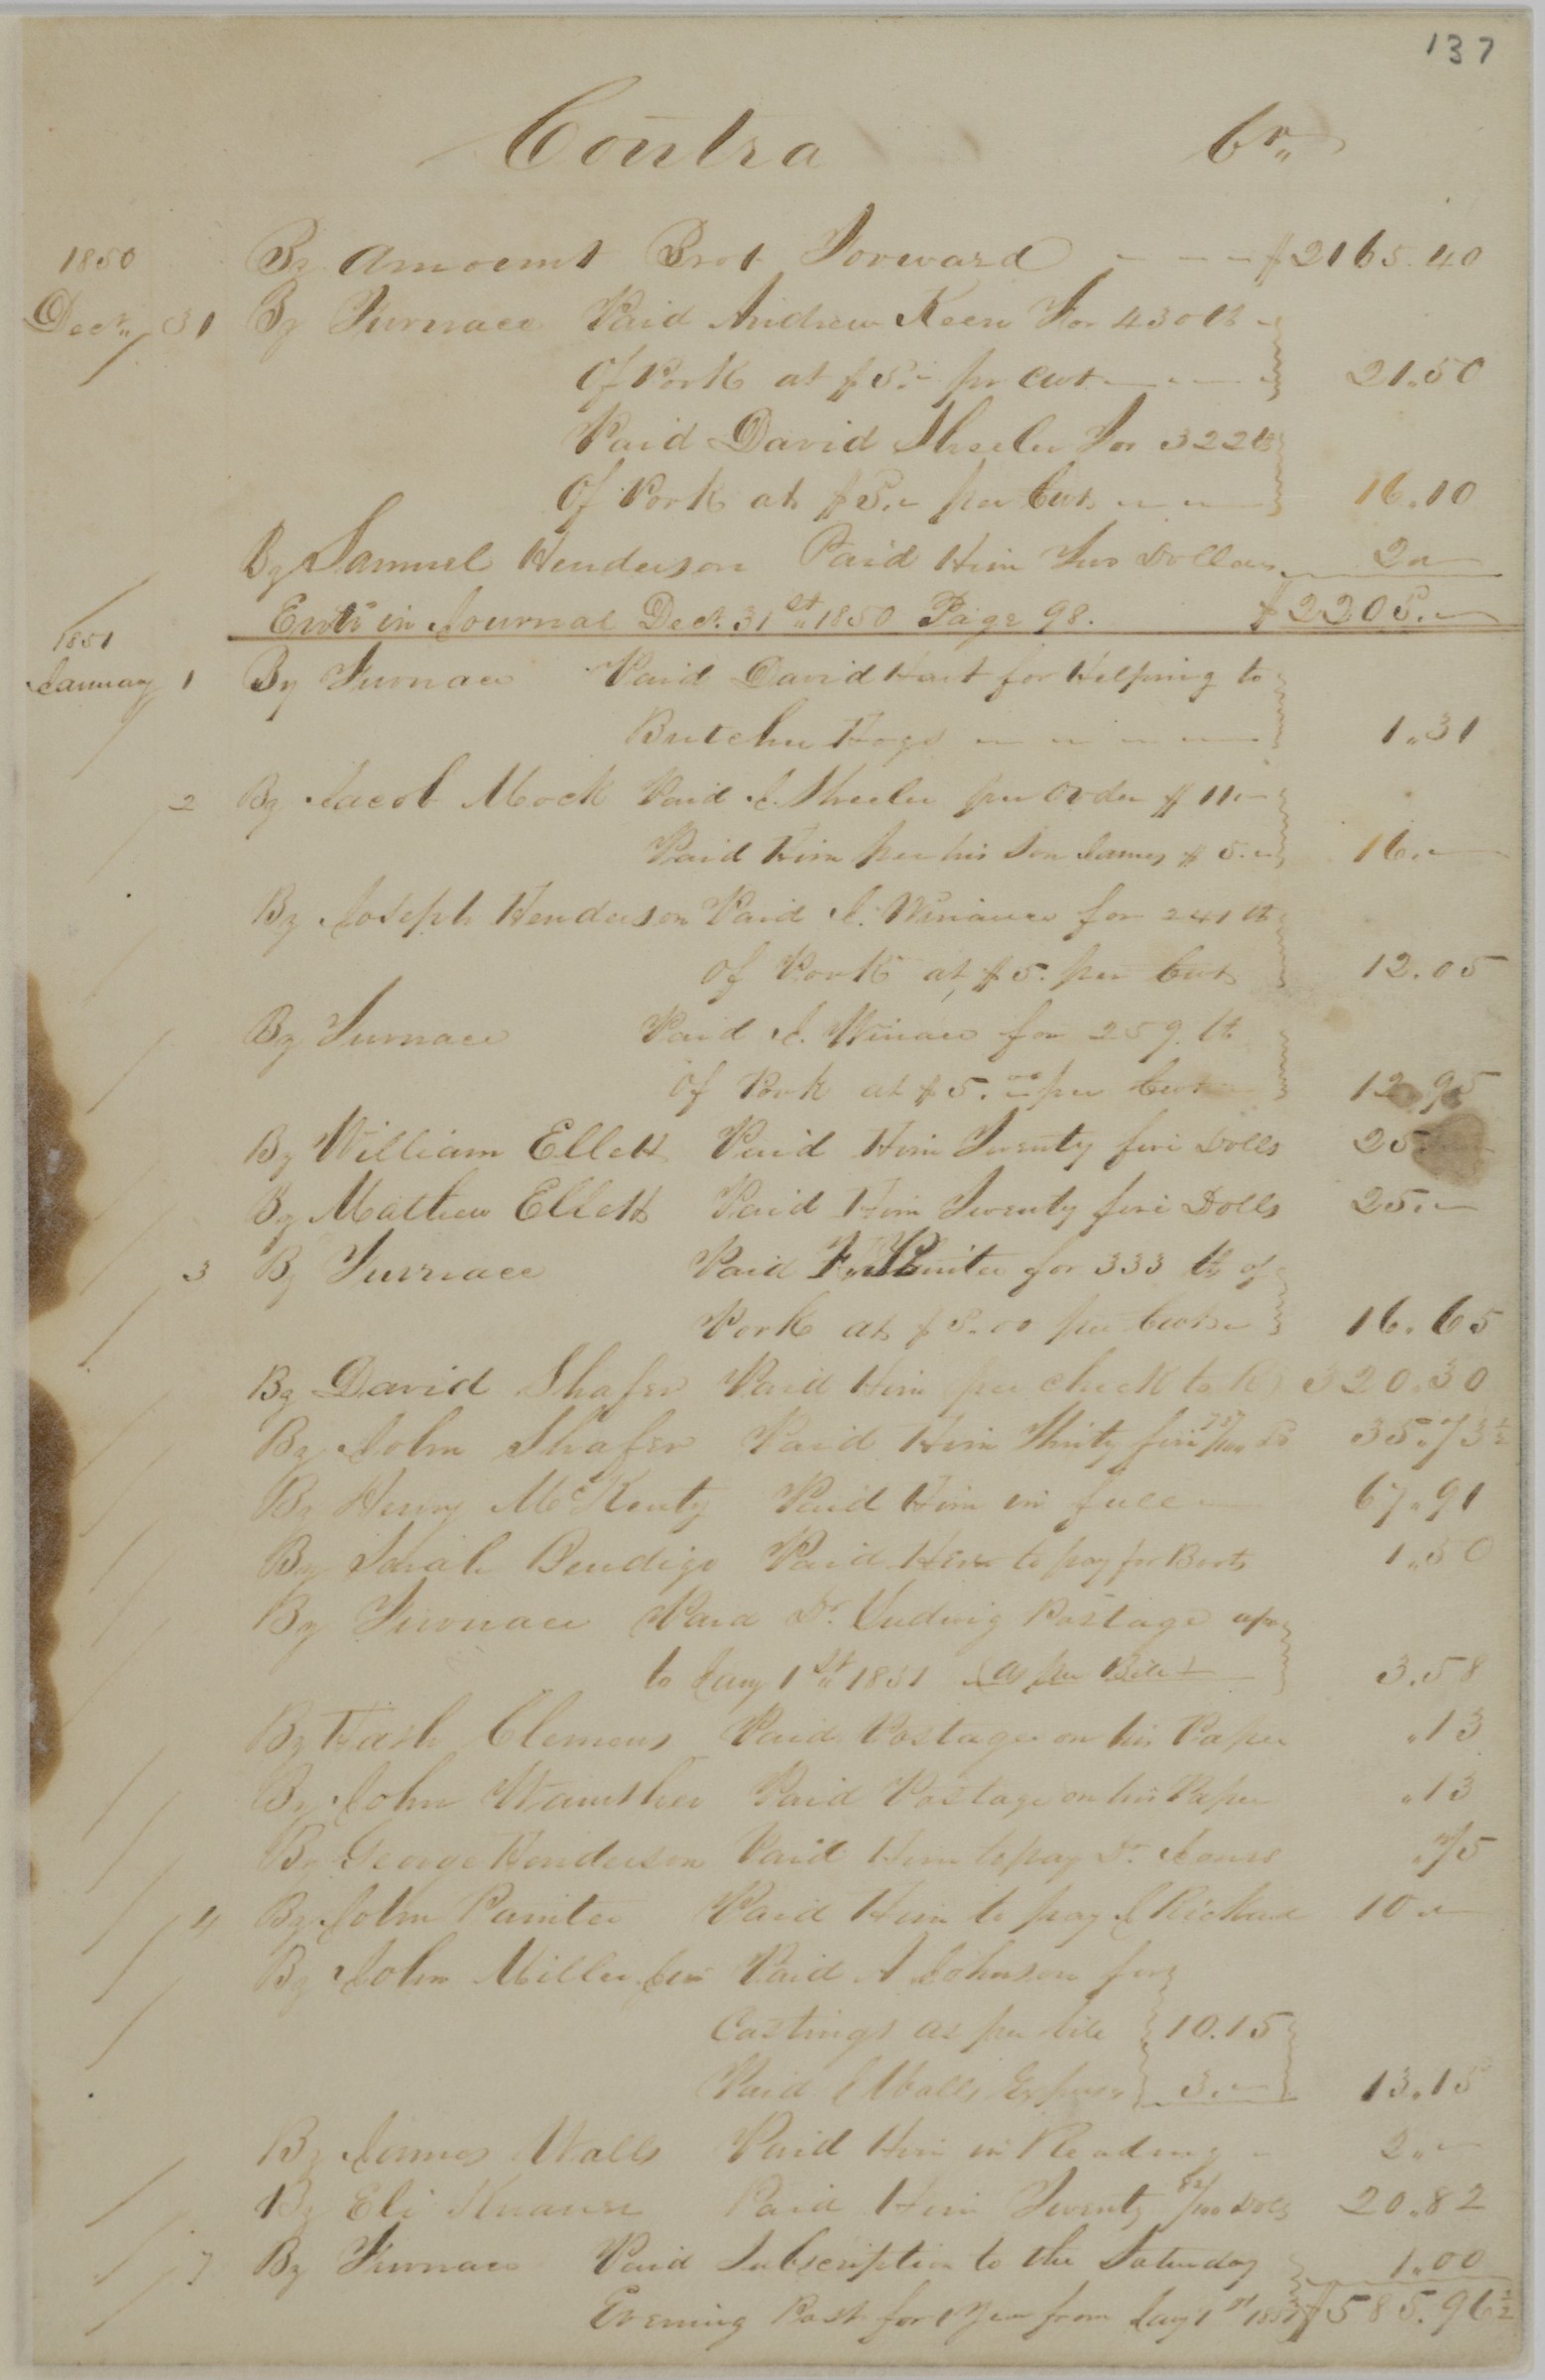 137
Contra Cr
1850 By Amount Brot Forward $2165.40
Decr 31 By Furnace Paid Andrew Keen For 430 lb
Of Pork at $5.- pr Cwt 21.50
Paid David Sheeler For 322 lb
Of Pork at $5.- per Cwt 16.10
By Samuel Henderson Paid Him Two Dollars 2.-
Entd in Journal Dec. 31st 1850 Page 98. $2205.-
1851
January 1 By Furnace Paid David Hart for Helping to
Butcher Hogs 1.31
2 By Jacob Mock Paid J. Sheeler per Order $11.-
Paid Him per his Son James $5.- 16.-
By Joseph Henderson Paid J. for 241 lb
of Pork at $5. per Cwt 12.05
By Furnace Paid J. for 259. lb
Of Pork at $5.00 per Cwt 12.95
By William Ellett Paid Him Twenty five Dolls 25.-
By Mathew Ellett Paid Him Twenty five Dolls 25.-
3 By Furnace Paid F. Painter for 333 lb of
Pork at $5.00 per Cwt 16.65
By David Shafer Paid Him per check to 320.30
By John Shafer Paid Him Thirty five 35.73½
By Henry McKenty Paid Him in full 67.91
By Sarah Bendigo Paid Her to pay for Boots 1.50
By Furnace Paid Dr. Ludwig Postage up
to Jany 1st 1851 as per Bill 3.58
By Clemens Paid Postage on his Paper .13
By John Paid Postage on his Paper .13
By George Henderson Paid Him to pay Dr. Jones .75
4 By John Painter Paid Him to pay J Richard 10.-
By John Miller Paid A Johnson for
Castings as per bill 10.15
Paid J Walls Expenses 3.- 13.15
By James Walls Paid Him in Reading 2.-
By Eli Knauer Paid Him Twenty 82/100 Dolls 20.82
7 By Furnace Paid Subscription to the Saturday 1.00
Evening Post for 1 Year from Jany 1st 1851 $585.96½